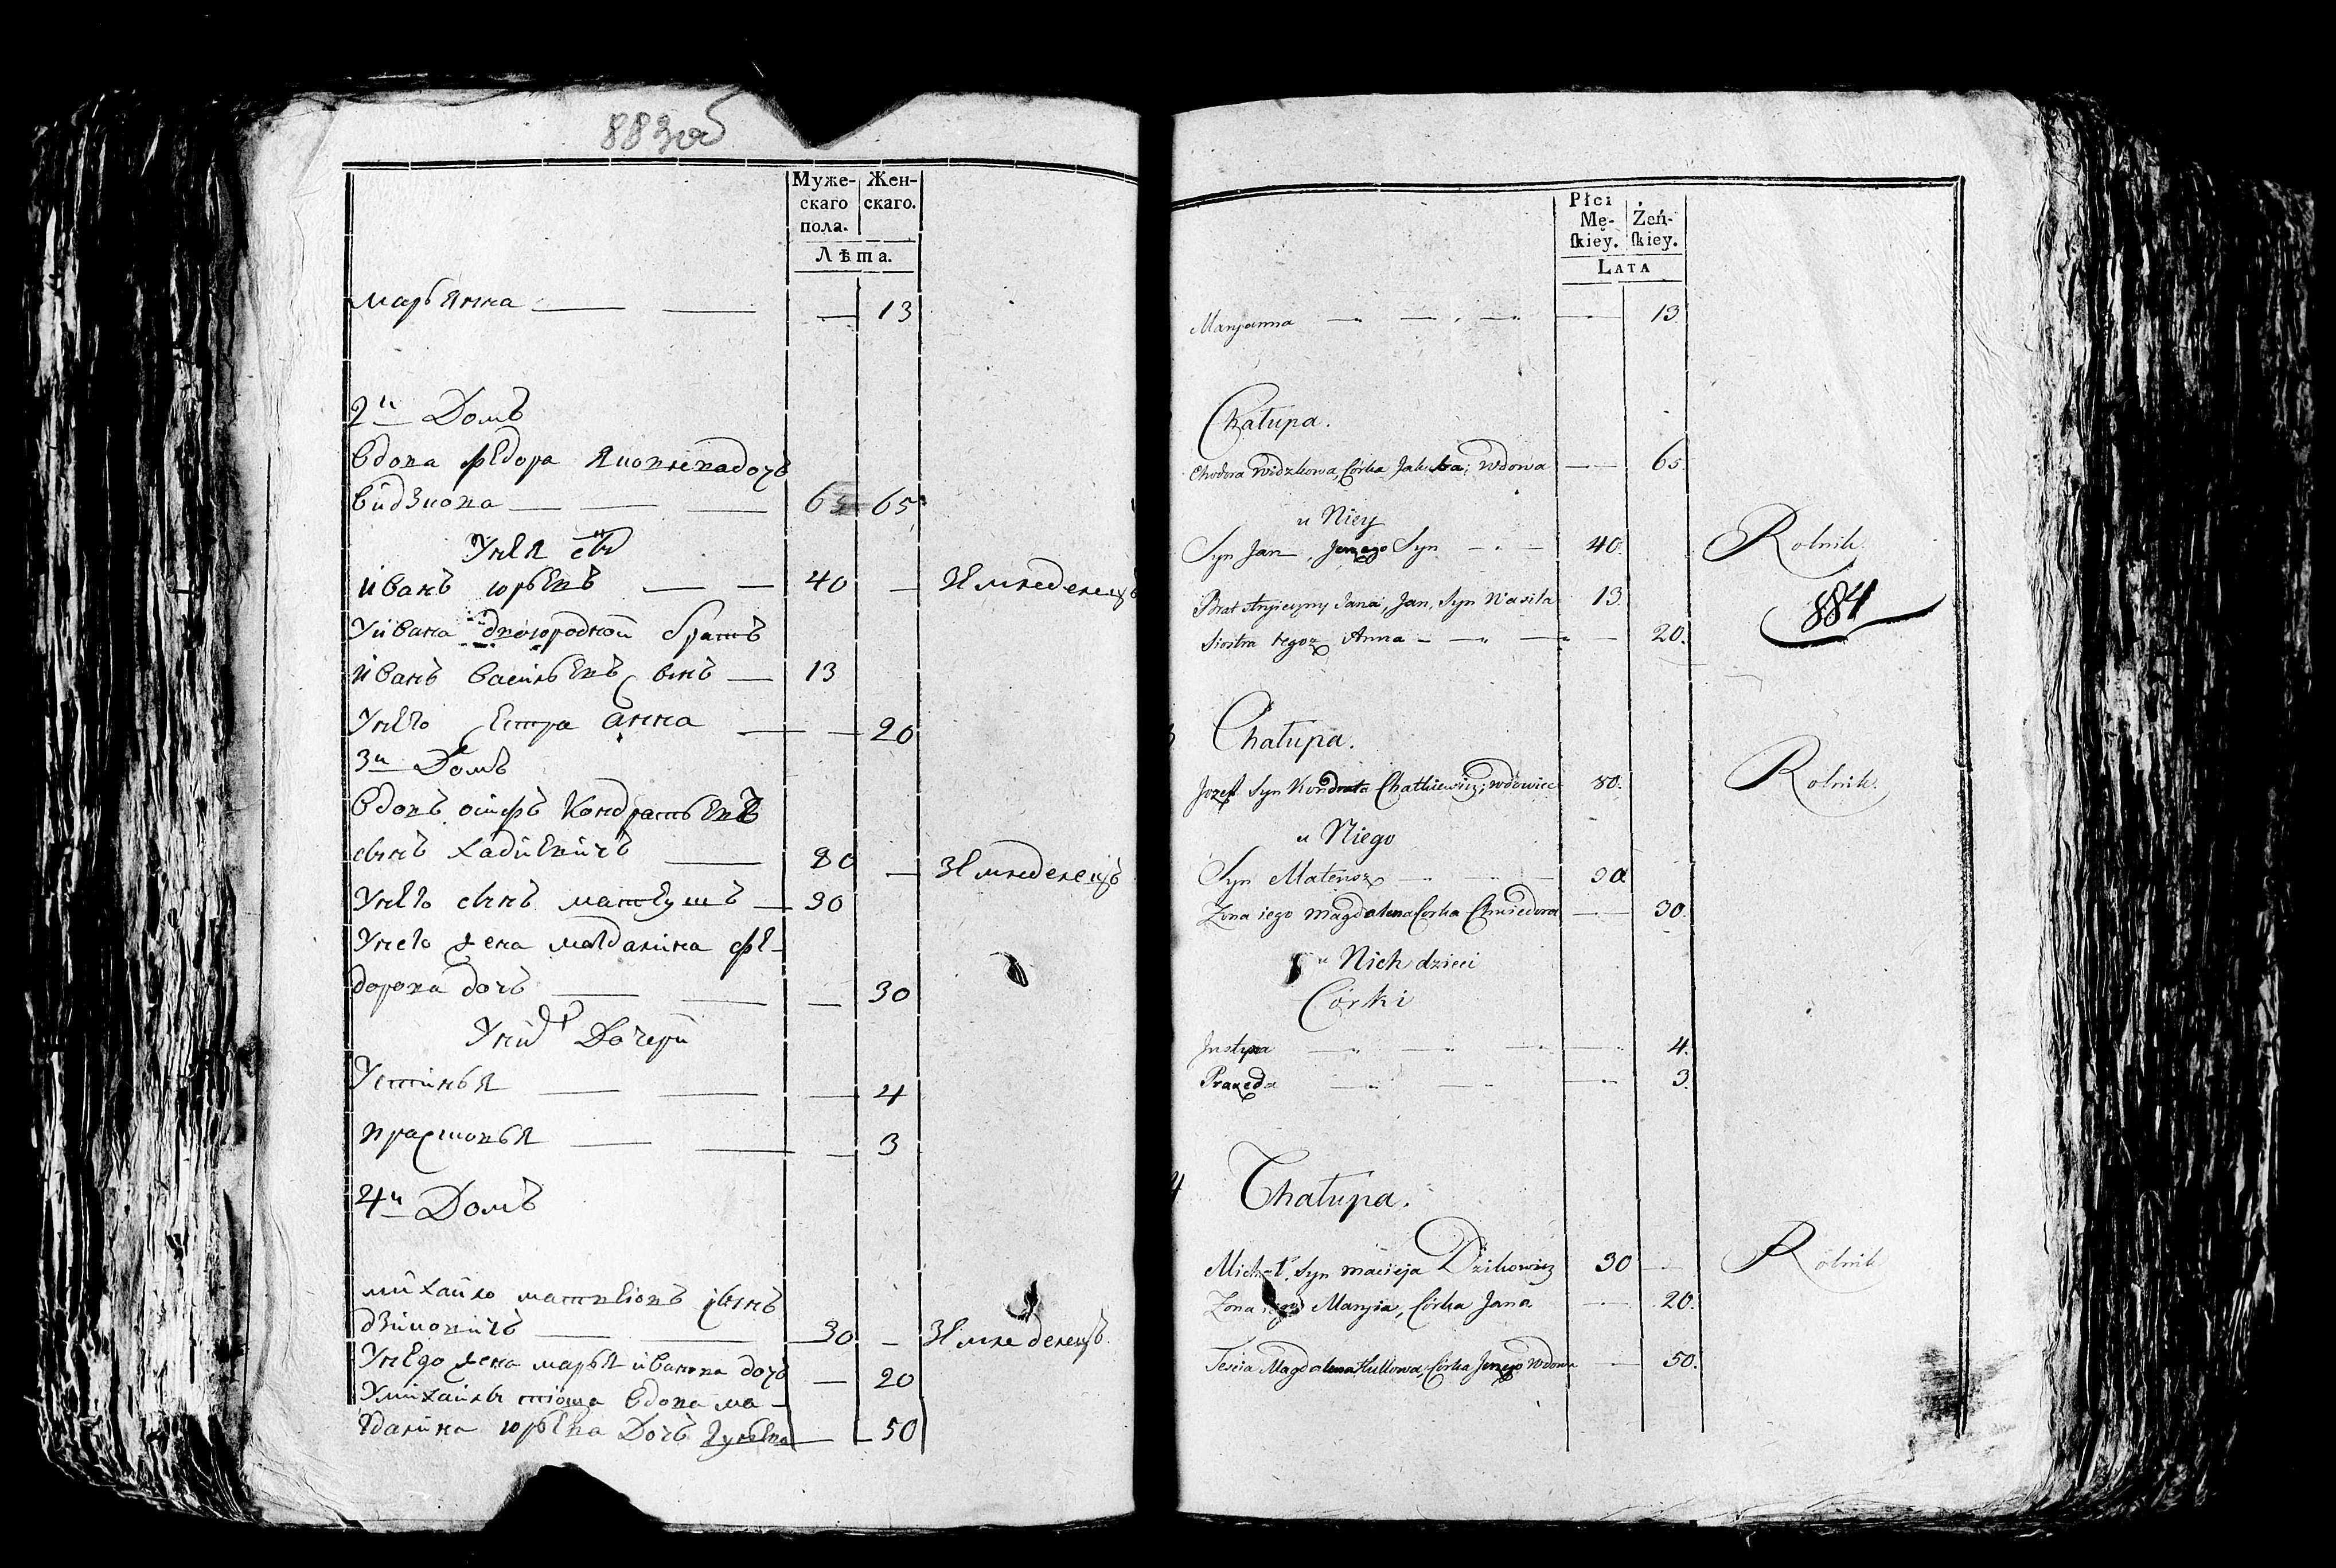 883об
Муже- Жен-
скаго скаго.
пола.
Лѣта.
марьянна — — — 13
2й Домъ
вдова федора Яковлева дочь
видзкова — — — 65 65
У нея сынъ
иванъ юрьевъ — — 40 — Землѣделецъ
У ивана двоюродной братъ
иванъ васильевъ сынъ — 13
У него сестра анна — — 20
3й Домъ
вдовъ осифъ Кондратьевъ
сынъ хадкевичъ — 80 — Землѣделецъ
У него сынъ матеушъ — 30
У него жена магдалина фе-
дорова дочь — — — 30
У нихъ Дочери
Устинья — — — 4
прасковья — — — 3
4й Домъ
михайло матвеевъ сынъ
дзиковичъ — — 30 — Землѣделецъ
У него жена марья иванова дочь — 20
У михайлы тіоща вдова ма-
гдалина юрьева Дочь — 50
Płci
Mę- Żeń-
ſkiey. ſkiey.
LATA
Maryanna — — — — 13.
Chałupa.
Chodora Widzkowa, Córka Jakuba; Wdowa — 65.
u Niey
Syn Jan, Jerzego Syn — 40. Rolnik.
Brat stryieczny Jana, Jan, Syn Wasila 13.
884
Siostra tegoż Anna — — — 20.
3 Chałupa.
Jozef Syn Kondrata Chatkiewicz; wdowiec 80. Rolnik.
u Niego
Syn Mateusz — — 30
Żona iego Magdalena Corka Chwiedora — 30.
u Nich dzieci
Córki
Justyna — — — — 4.
Praxeda — — — 3.
4 Chałupa.
Michał, Syn Macieja Dzikowicz 30 — Rolnik
Zona iego Maryia, Córka Jana — 20.
Teścia Magdalena Hulkowa, Córka Jerzego Wdowa — 50.